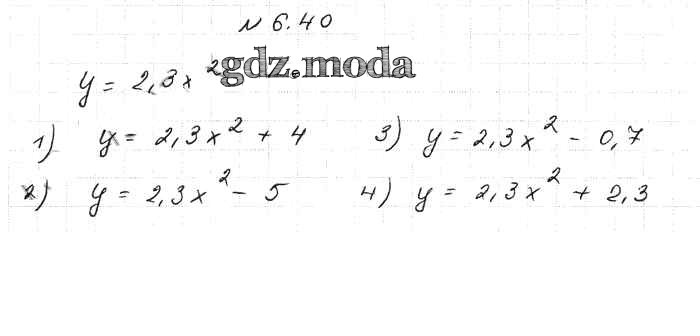 № 6.40
y = 2,3x² gdz.moda
1) y = 2,3x² + 4 3) y = 2,3x² - 0,7
2) y = 2,3x² - 5 4) y = 2,3x² + 2,3